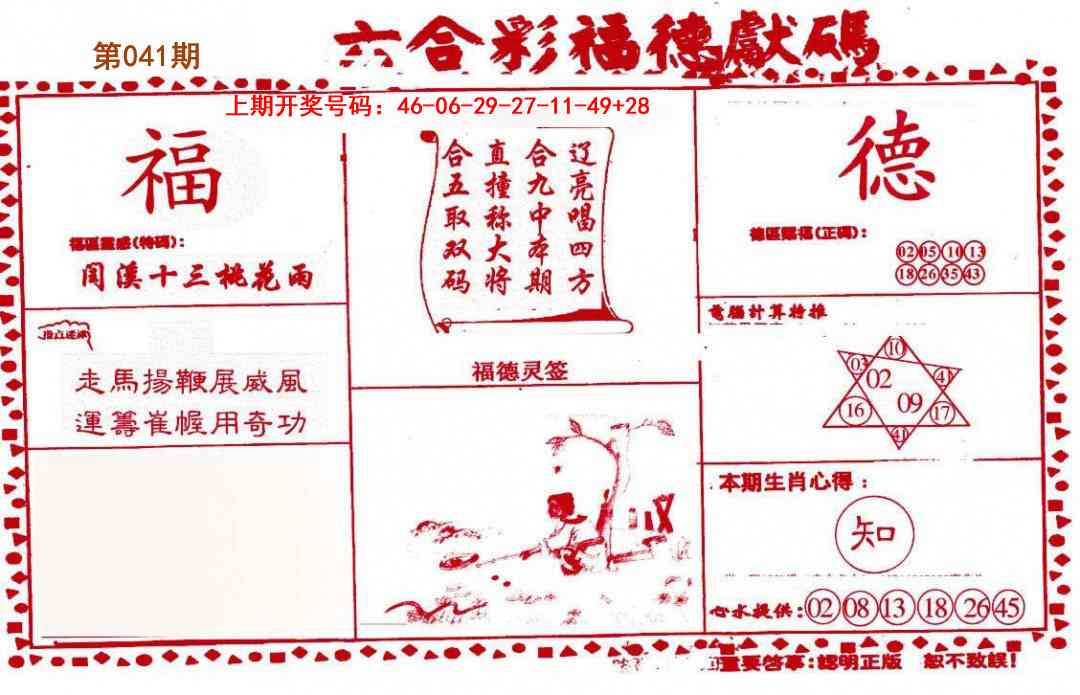 第041期
六合彩福德獻碼
上期开奖号码：46-06-29-27-11-49+28
福
福區靈感(特碼)：
閏溪十三桃花雨
走馬揚鞭展威風
運籌崔幄用奇功
辽亮唱四方
合九中本期
直撞称大将
合五取双码
福德灵签
德
德區賜福(正碼)：
02 05 10 13
18 26 35 43
電腦計算特推
10
03
02
41
16
09
17
41
本期生肖心得：
知
心水提供：02 08 13 18 26 45
重要啓事：認明正版 恕不致誤！